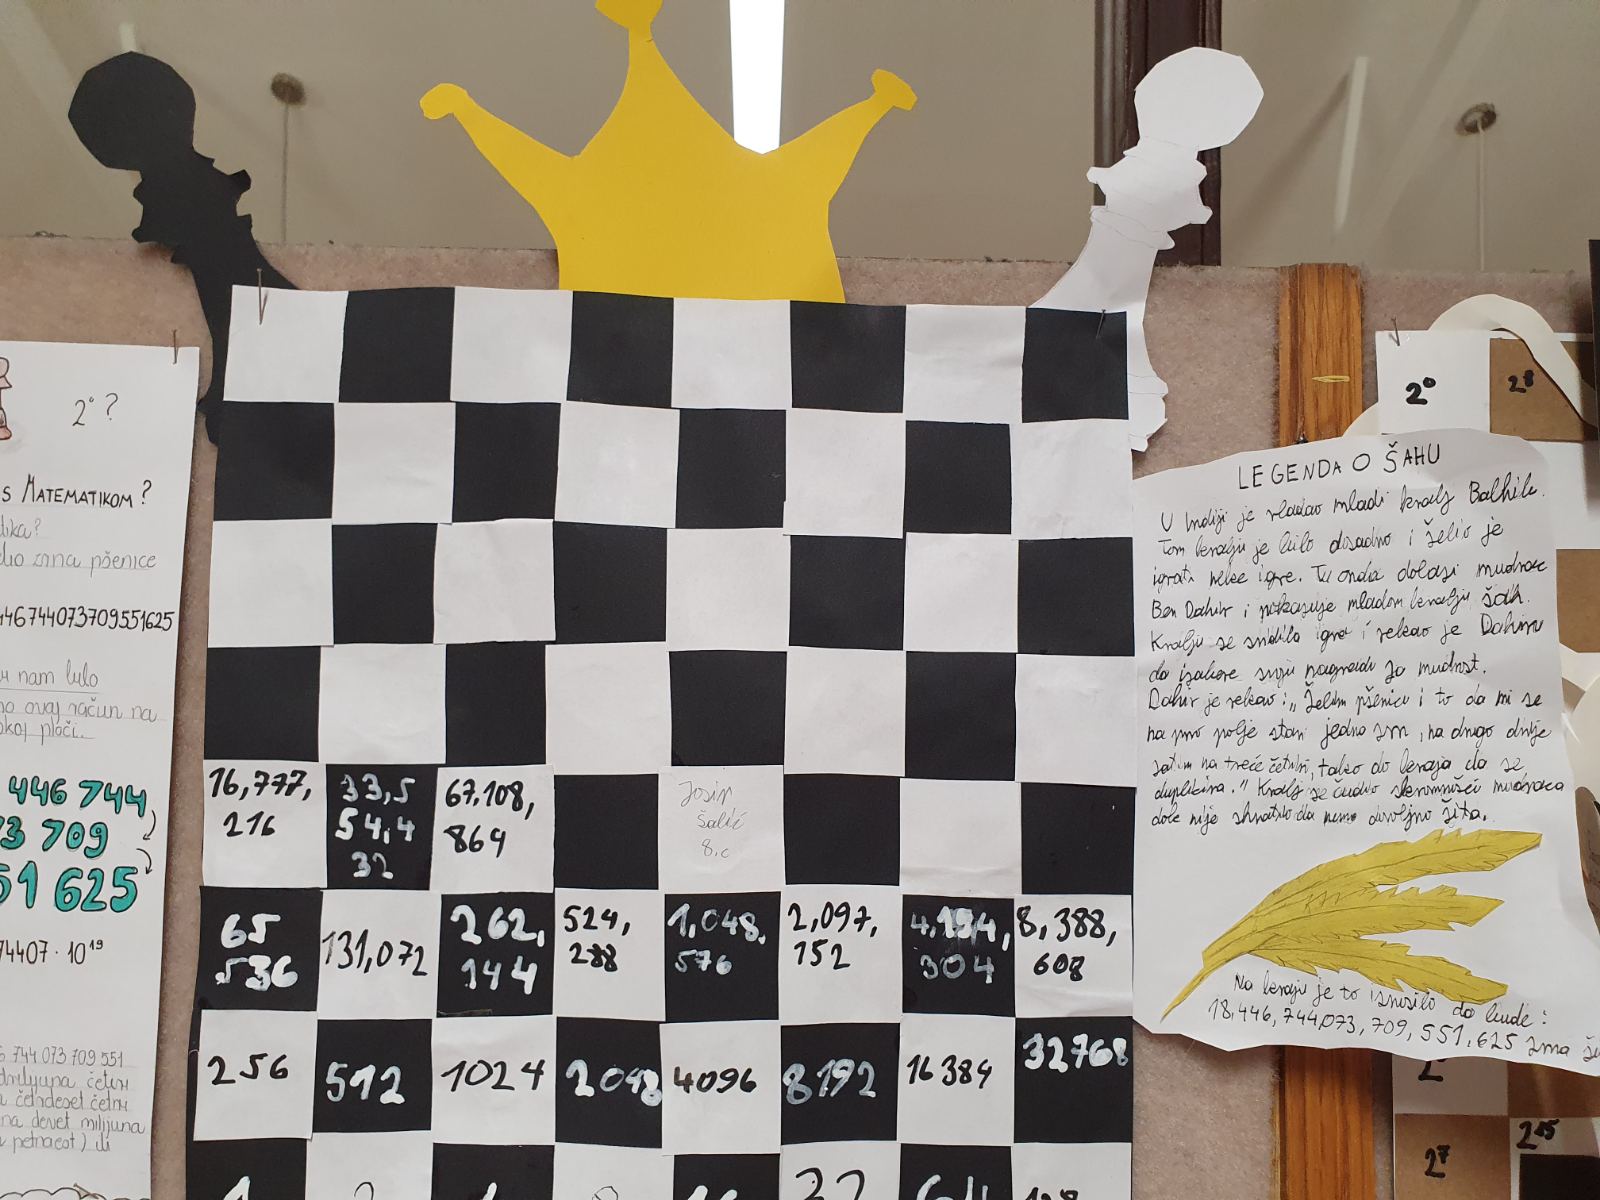 2⁰?
S MATEMATIKOM?
zrna pšenice
446744073709551625
nam bilo
ovaj račun na
ploči..
446 744,
73 709
51 625
74407 · 10¹⁹
744 073 709 551
četiri
četrdeset četiri
devet milijuna
petnaest) ili
16,777,
216
33,5
54,4
32
67,108,
864
Josip
Šalić
8.c
65
536
131,072
262,
144
524,
288
1,048,
576
2,097,
152
4,194,
304
8,388,
608
256
512
1024
2048
4096
8192
16384
32768
32
64
128
LEGENDA O ŠAHU
U Indiji je vladao mladi kralj Balhik.
Tom kralju je bilo dosadno i želio je
igrati neke igre. Tu onda dolazi mudrac
Ben Dahir i pokazuje mladom kralju šah.
Kralju se svidila igra i rekao je Dahiru
da izabere svoju nagradu za mudrost.
Dahir je rekao: „Želim pšenicu i to da mi se
na prvo polje stavi jedno zrn, na drugo dvije
zatim na treće četiri, tako do kraja da se
duplicira." Kralj se čudio skromnišći mudraca
dok nije shvatio da nema dovoljno žita.
Na kraju je to iznosilo da bude:
18,446,744,073,709,551,625 zrna
2⁰
2⁸
2⁷